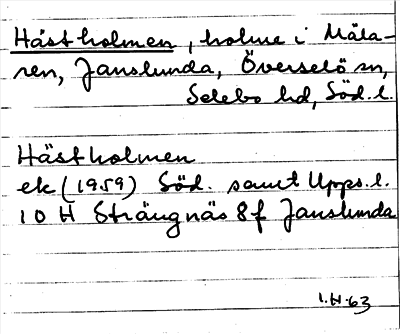 Hästholmen, holme i Mäla-
ren, Janslunda, Överselö sn,
Selebo hd, Söd. l.
Hästholmen
ek (1959) Söd. samt Upps. l.
10 H Strängnäs 8f Janslunda
63